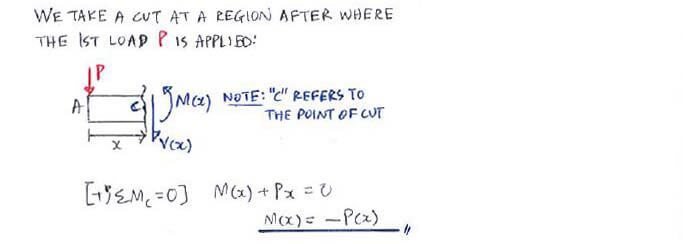 WE TAKE A CUT AT A REGION AFTER WHERE
THE 1ST LOAD P IS APPLIED:
P
A C M(x) NOTE: "C" REFERS TO
THE POINT OF CUT
x V(x)
[+↺ΣM_C=0] M(x) + Px = 0
M(x) = -P(x)